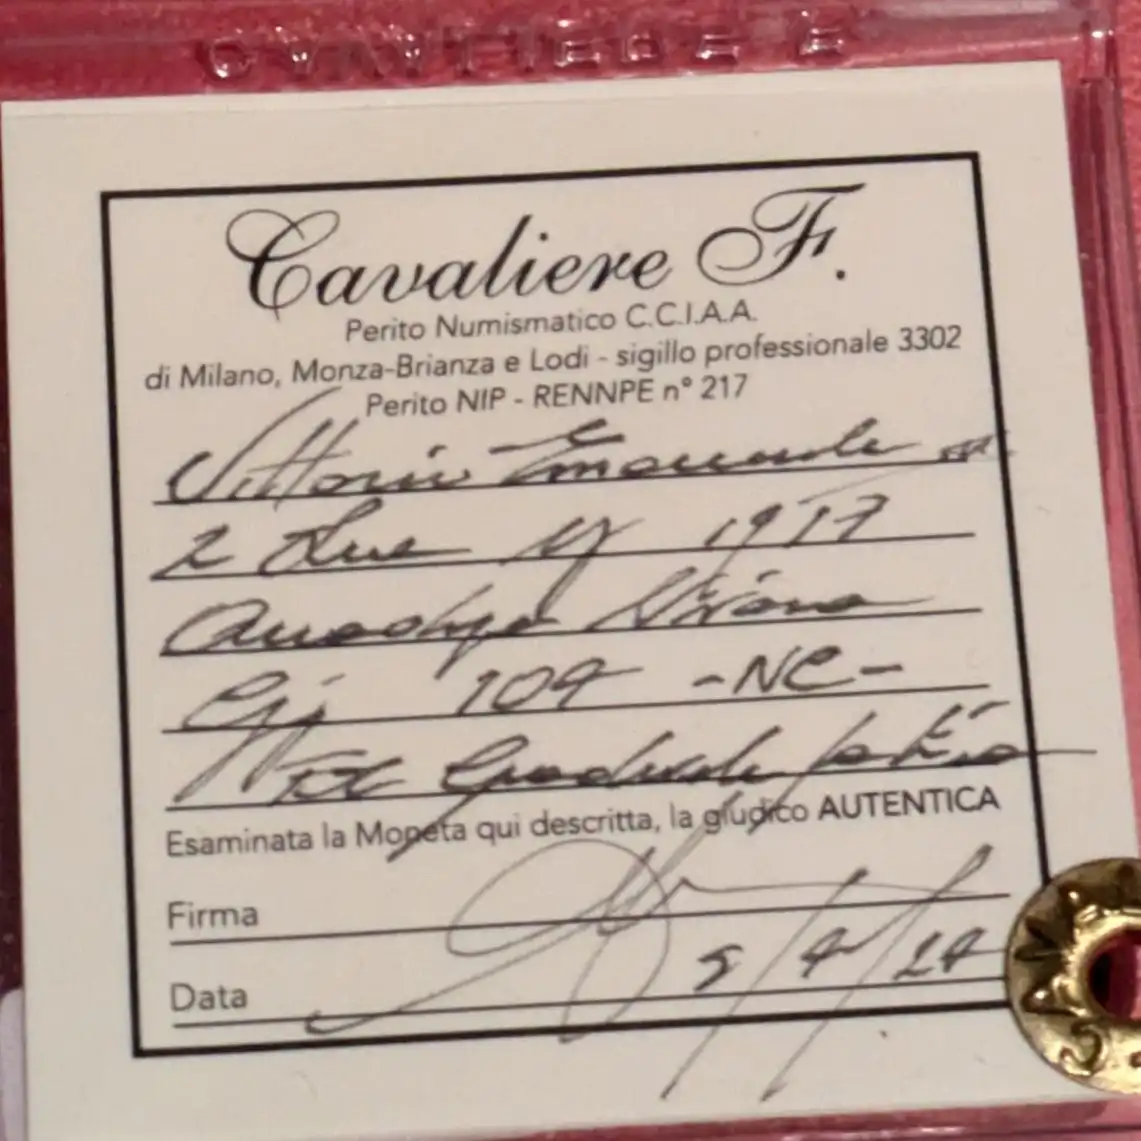 CAVALIERE F
Cavaliere F.
Perito Numismatico C.C.I.A.A.
di Milano, Monza-Brianza e Lodi - sigillo professionale 3302
Perito NIP - RENNPE n° 217
Vittorio Emanuele III
2 Lire 1917
Quadriga Briosa
Gig 104 -NC-
FDC
Esaminata la Moneta qui descritta, la giudico AUTENTICA
Firma
Data 9/4/24